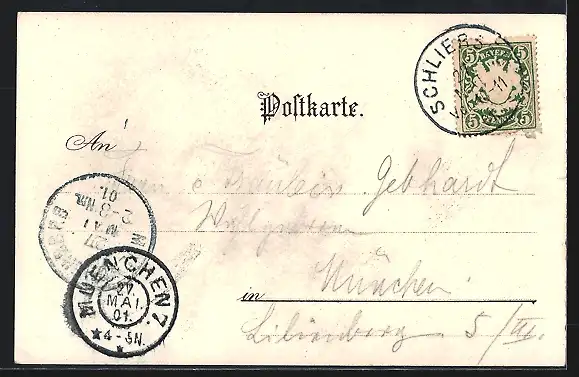 SCHLIERS
BAYERN
5 5
5 5
Postkarte.
An
Fräulein Gebhardt
in München
Lilienberg 5/III.
27
MAI
01.
2-3 NM.
MUENCHEN 7.
27
MAI.
01.
4-5N.